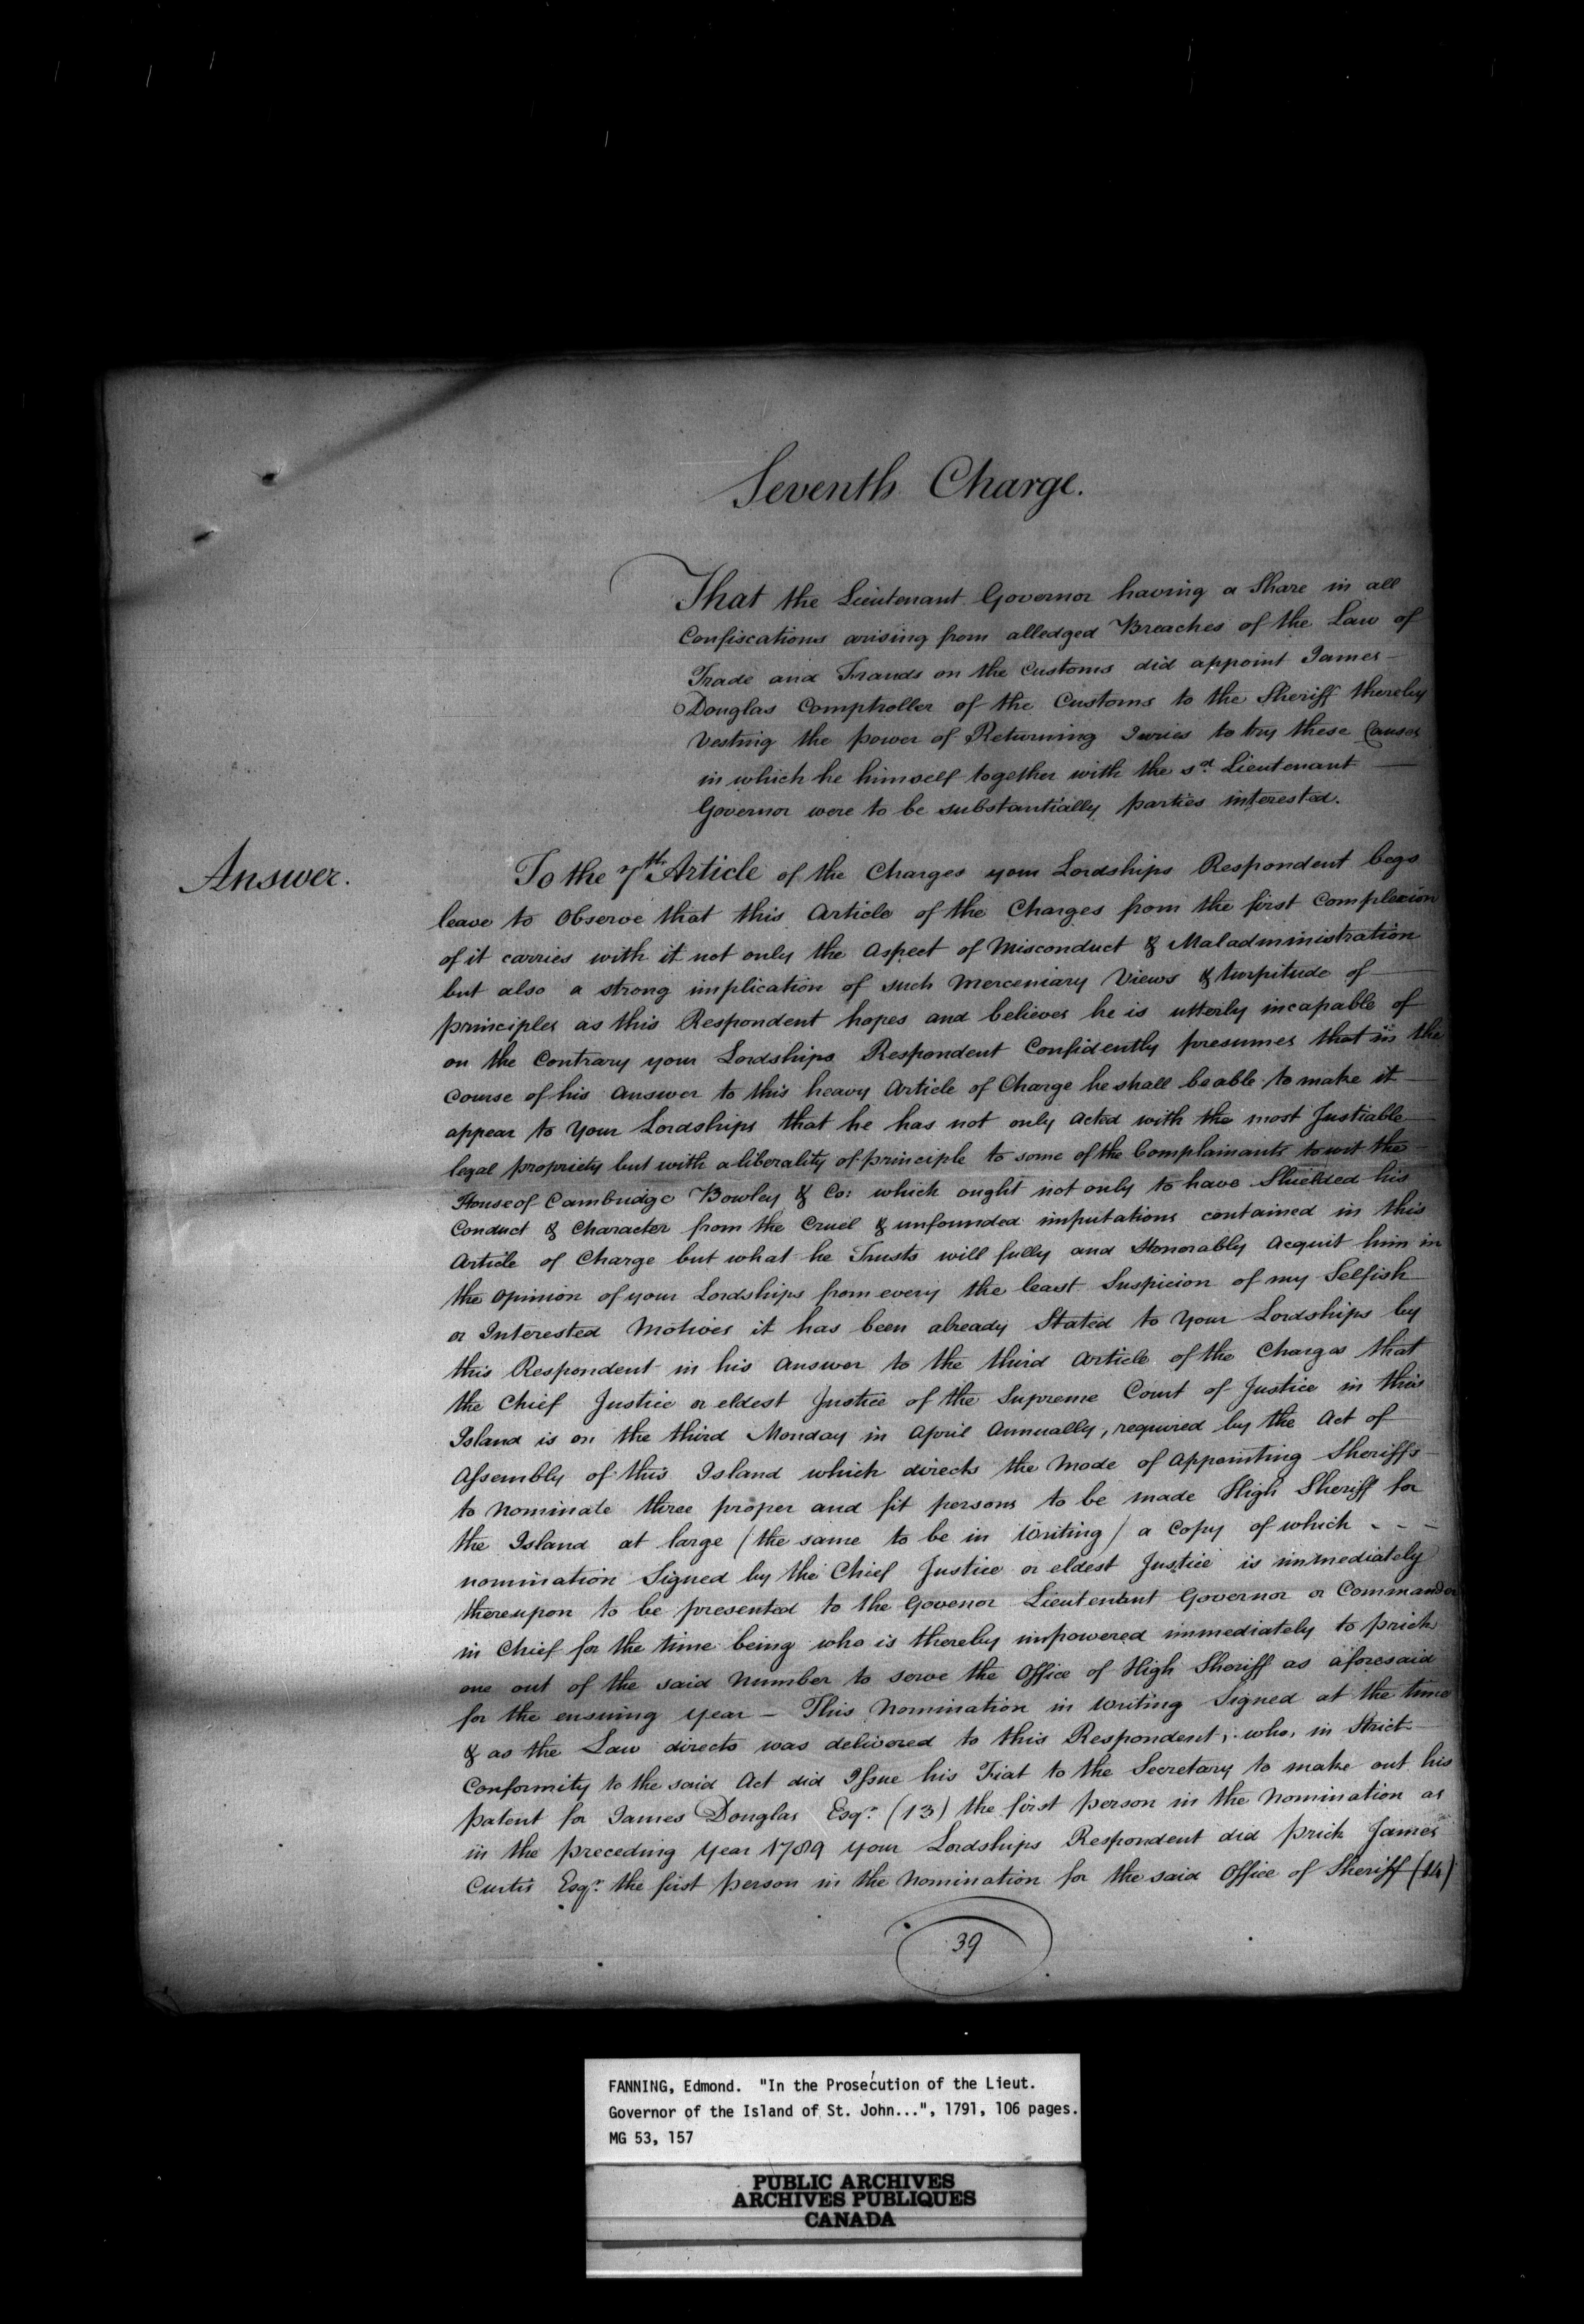 Seventh Charge.
That the Lieutenant Governor having a Share in all
Confiscations arising from alledged Breaches of the Law of
Trade and Frauds on the Customs did appoint James
Douglas Comptroller of the Customs to the Sheriff thereby
Vesting the power of Returning Juries to try these Causes
in which he himself together with the sd. Lieutenant
Governor were to be substantially parties interested.
Answer.
To the 7th Article of the Charges your Lordships Respondent begs
leave to Observe that this Article of the Charges from the first Complexion
of it carries with it not only the Aspect of Misconduct & Maladministration
but also a strong implication of such Merceniary Views & turpitude of
principles as this Respondent hopes and believes he is utterly incapable of
on the Contrary your Lordships Respondent Confidently presumes that in the
Course of his Answer to this heavy Article of Charge he shall be able to make it
appear to Your Lordships that he has not only Acted with the most Justiable
legal propriety but with a liberality of principle to some of the Complainants to wit the
House of Cambridge Bowley & Co: which ought not only to have Shielded his
Conduct & Character from the Cruel & unfounded imputations contained in this
Article of Charge but what he Trusts will fully and Honorably Acquit him in
the Opinion of your Lordships from every the least Suspicion of my Selfish
or Interested Motives it has been already Stated to Your Lordships by
this Respondent in his Answer to the third Article of the Charges that
the Chief Justice or eldest Justice of the Supreme Court of Justice in this
Island is on the third Monday in April Annually, required by the Act of
Assembly of this Island which directs the Mode of Appointing Sheriffs
to Nominate three proper and fit persons to be made High Sheriff for
the Island at large (the same to be in Writing) a Copy of which - - -
nomination Signed by the Chief Justice or eldest Justice is immediately
thereupon to be presented to the Govenor Lieutentent Governor or Commander
in Chief for the time being who is thereby impowered immediately to prick
one out of the said Number to serve the Office of High Sheriff as aforesaid
for the ensuing Year - This Nomination in Writing Signed at the time
& as the Law directs was delivered to this Respondent; who, in Strict
Conformity to the said Act did Issue his Fiat to the Secretary to make out his
patent for James Douglas Esqr. (13) the first person in the Nomination as
in the preceding Year 1789 your Lordships Respondent did prick James
Curtis Esqr. the first person in the Nomination for the said Office of Sheriff (14)
39
FANNING, Edmond. "In the Prosecution of the Lieut.
Governor of the Island of St. John...", 1791, 106 pages.
MG 53, 157
PUBLIC ARCHIVES
ARCHIVES PUBLIQUES
CANADA